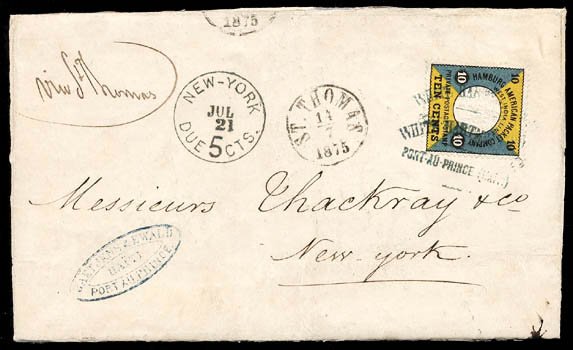 1875
via St Thomas
NEW-YORK
JUL
21
DUE 5 CTS.
ST. THOMAS
14
7
1875
10 10
HAMBURG AMERICAN PACKET COMPANY
PRIVATE POSTAGE STAMP
TEN CENTS
10 10
PORT-AU-PRINCE
Messieurs Thackray & Co
New-York.
& EWALD
HAITI
PORT AU PRINCE